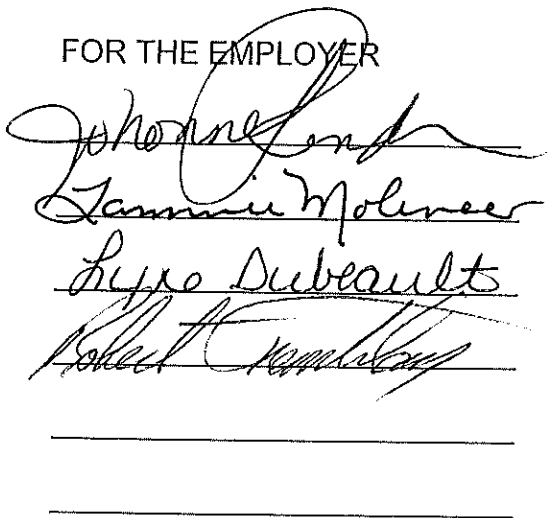 FOR THE EMPLOYER
Johanne
Tammie Molineer
Lyne Dubeault
Robert